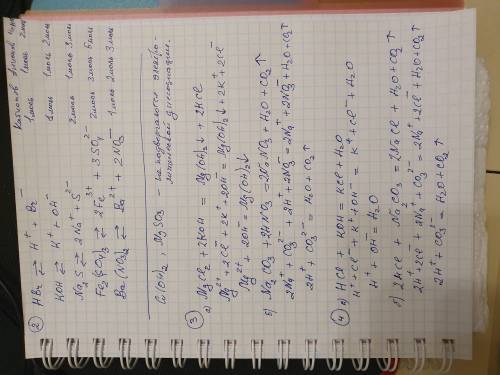 Катионов Анионов
② HBr ⇄ H⁺ + Br⁻ 1 моль 1 моль 2 моль
KOH ⇄ K⁺ + OH⁻ 1 моль 1 моль 2 моль
Na₂S ⇄ 2Na⁺ + S²⁻ 2 моль 1 моль 3 моль
Fe₂(SO₄)₃ ⇄ 2Fe³⁺ + 3SO₄²⁻ 2 моль 3 моль 5 моль
Ba(NO₃)₂ ⇄ Ba²⁺ + 2NO₃⁻ 1 моль 2 моль 3 моль
Cu(OH)₂, MgSO₃ - не подвергаются электро-
литической диссоциации.
③
а) MgCl₂ + 2KOH = Mg(OH)₂↓ + 2KCl
Mg²⁺ + 2Cl⁻ + 2K⁺ + 2OH⁻ = Mg(OH)₂↓ + 2K⁺ + 2Cl⁻
Mg²⁺ + 2OH⁻ = Mg(OH)₂↓
б) Na₂CO₃ + 2HNO₃ = 2NaNO₃ + H₂O + CO₂↑
2Na⁺ + CO₃²⁻ + 2H⁺ + 2NO₃⁻ = 2Na⁺ + 2NO₃⁻ + H₂O + CO₂↑
2H⁺ + CO₃²⁻ = H₂O + CO₂↑
④ а) HCl + KOH = KCl + H₂O
H⁺ + Cl⁻ + K⁺ + OH⁻ = K⁺ + Cl⁻ + H₂O
H⁺ + OH⁻ = H₂O
б) 2HCl + Na₂CO₃ = 2NaCl + H₂O + CO₂↑
2H⁺ + 2Cl⁻ + 2Na⁺ + CO₃²⁻ = 2Na⁺ + 2Cl⁻ + H₂O + CO₂↑
2H⁺ + CO₃²⁻ = H₂O + CO₂↑